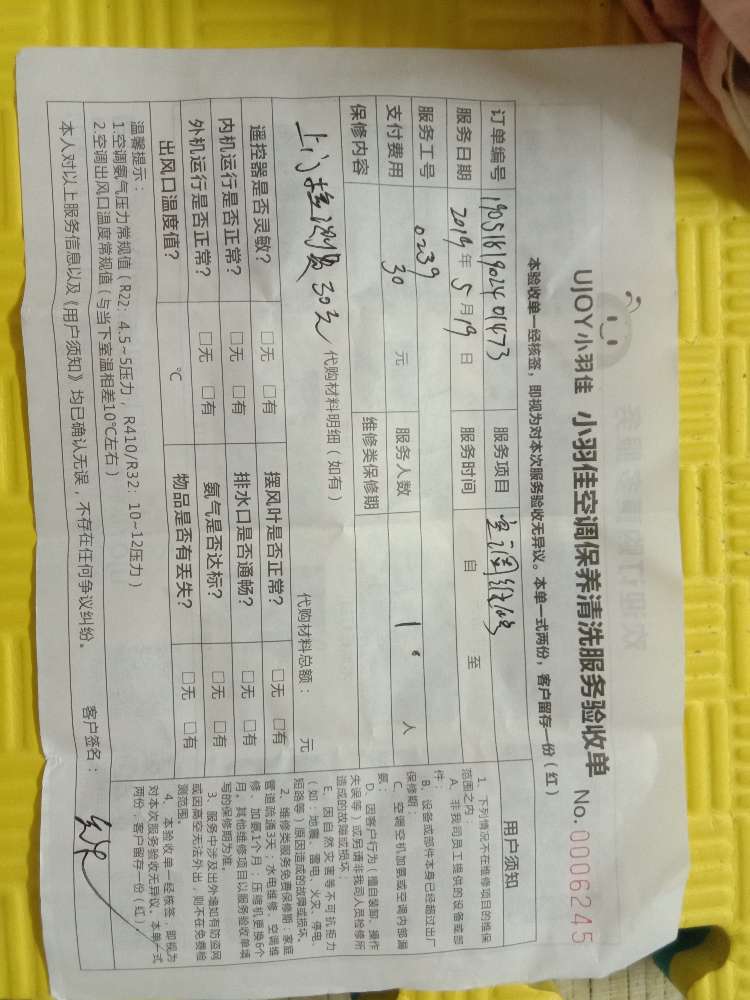 UJOY小羽佳 小羽佳空调保养清洗服务验收单 No. 0006245
本验收单一经核签，即视为对本次服务验收无异议。本单一式两份，客户留存一份（红）
订单编号 1905181902401473 服务项目 空调维修
服务日期 2019 年 5 月 19 日 服务时间 自 至
服务工号 0239 服务人数 1 人
支付费用 30 元 维修类保修期
保修内容
上门检测费30元 代购材料明细（如有） 代购材料总额： 元
遥控器是否灵敏？ □无 □有 摆风叶是否正常？ □无 □有
内机运行是否正常？ □无 □有 排水口是否通畅？ □无 □有
外机运行是否正常？ □无 □有 氨气是否达标？ □无 □有
出风口温度值？ ℃ 物品是否有丢失？ □无 □有
温馨提示：
1.空调氨气压力常规值（R22：4.5~5压力， R410/R32：10~12压力）
2.空调出风口温度常规值（与当下室温相差10℃左右）
本人对以上服务信息以及《用户须知》均已确认无误，不存在任何争议纠纷。 客户签名：
用户须知
1、下列情况不在维修项目的维保
范围之内：
A、非我司员工提供的设备或部
件；
B、设备或部件本身已经超过出厂
保修期；
C、空调空机加氨或空调内部漏
氨；
D、因客户行为（擅自装卸、操作
失误等）或另请非我司人员检修所
造成的故障或损坏；
E、因自然灾害等不可抗拒力
（如：地震、雷电、火灾、停电、
短路等）原因造成的故障或损坏。
2、维修类服务免费保修期：家庭
管道疏通3天；水电维修、空调维
修、加氨1个月；压缩机更换6个
月；其他维修项目以服务验收单填
写的保修期为准。
3、服务中涉及出外墙如有防盗网
或因高空无法外出，则不在免费检
测范围。
4、本验收单一经核签，即视为
对本次服务验收无异议。本单一式
两份，客户留存一份（红）